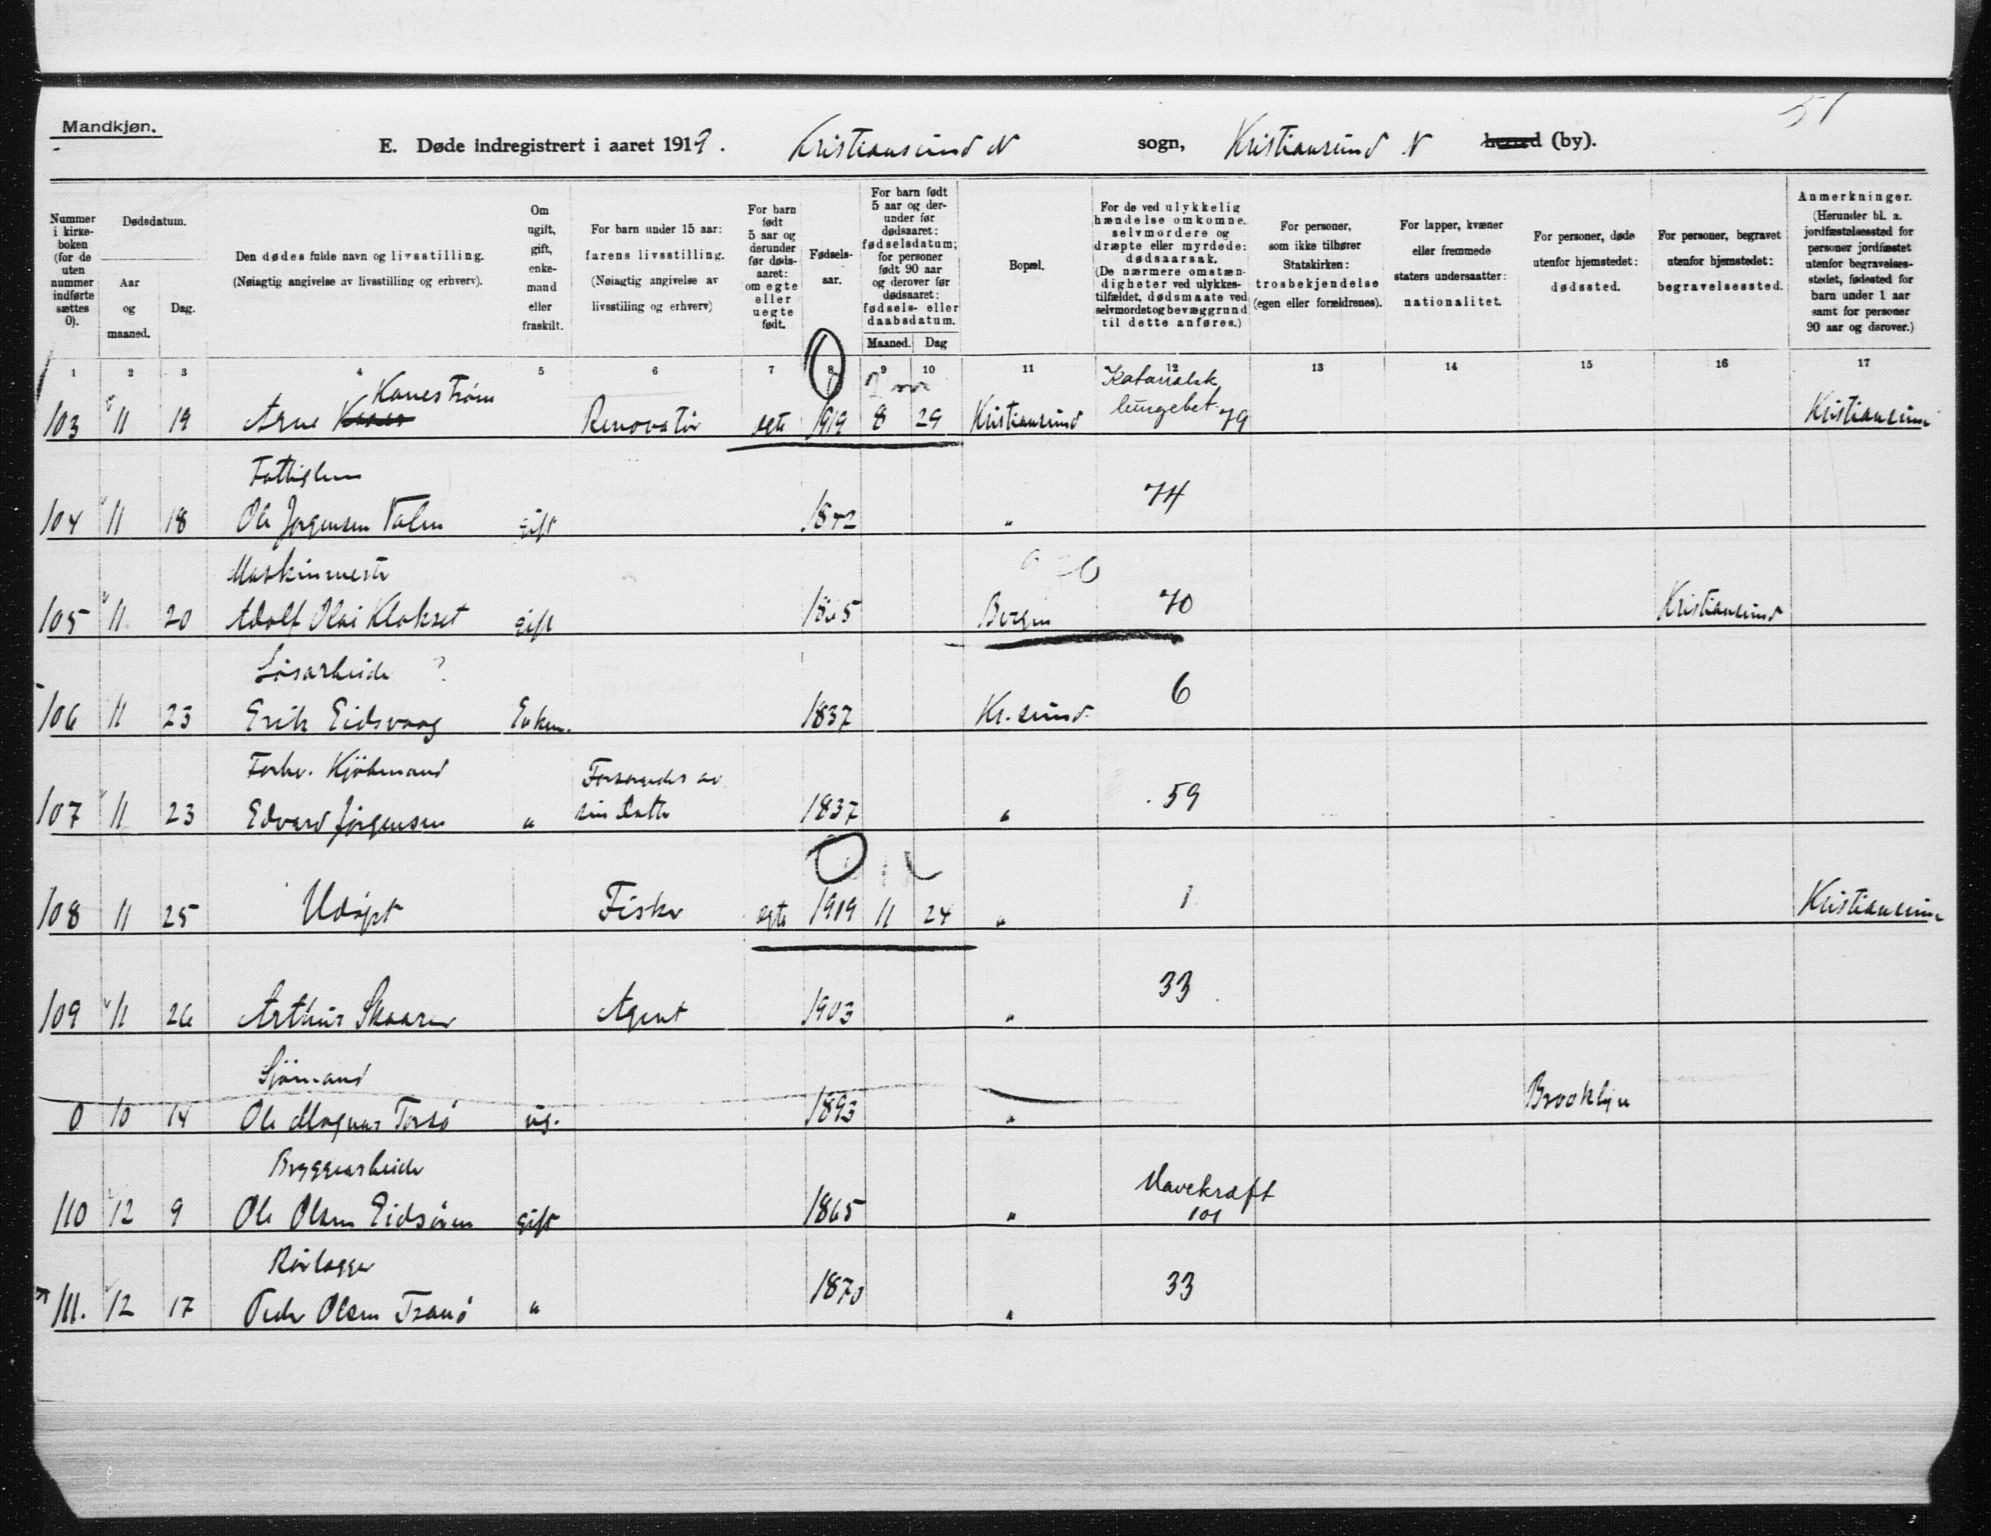 51
Mandkjøn.
E. Døde indregistrert i aaret 1919. Kristiansund N sogn, Kristiansund N herred (by).
Nummer i kirkeboken (for de uten nummer indførte sættes 0).
Dødsdatum.
Aar og maaned.
Dag.
Den dødes fulde navn og livsstilling.
(Nøiagtig angivelse av livsstilling og erhverv).
Om ugift, gift, enkemand eller fraskilt.
For barn under 15 aar: farens livsstilling.
(Nøiagtig angivelse av livsstiling og erhverv)
For barn født 5 aar og derunder før dødsaaret: om egte eller uegte født.
Fødselsaar.
For barn født 5 aar og derunder før dødsaaret: fødselsdatum; for personer født 90 aar og derover før dødsaaret: fødsels- eller daabsdatum.
Maaned. Dag
Bopæl.
For de ved ulykkelig hændelse omkomne, selvmordere og dræpte eller myrdede: dødsaarsak.
(De nærmere omstændigheter ved ulykkestilfældet, dødsmaate ved selvmordet og bevæggrund til dette anføres.)
For personer, som ikke tilhører Statskirken: trosbekjendelse (egen eller forældrenes).
For lapper, kvæner eller fremmede staters undersaatter: nationalitet.
For personer, døde utenfor hjemstedet: dødssted.
For personer, begravet utenfor hjemstedet: begravelsessted.
Anmerkninger.
(Herunder bl. a. jordfæstelsessted for personer jordfæstet utenfor begravelsesstedet, fødested for barn under 1 aar samt for personer 90 aar og derover.)
1 2 3 4 5 6 7 8 9 10 11 12 13 14 15 16 17
Kanestrøm Katarralsk
103 11 19 Arne Renovatør egte 1919 8 29 Kristiansund lungebet. 79 Kristiansund
104 11 18 Ole Jørgensen gift 1842 " 74
Maskinmester
105 11 20 Adolf Olai Klokset gift 1865 Bergen 70 Kristiansund
Løsarbeider ?
106 11 23 Erik Eidsvaag Enkem. 1837 Kr.sund. 6
Forhv. Kjøbmand Forsørgedes av
107 11 23 Edvard Jørgensen " sin 1837 " 59
108 11 25 Udøpt Fisker egte 1919 11 24 " 1 Kristiansund
109 11 26 Arthur Skaaren Agent 1903 " 33
Sjømand
0 10 14 Ole Magnus ug. 1893 " Brooklyn
Bryggearbeider Mavekræft
110 12 9 Ole Olsen gift 1865 " 101
Rørlægger
111. 12 17 Peder Olsen " 1870 " 33